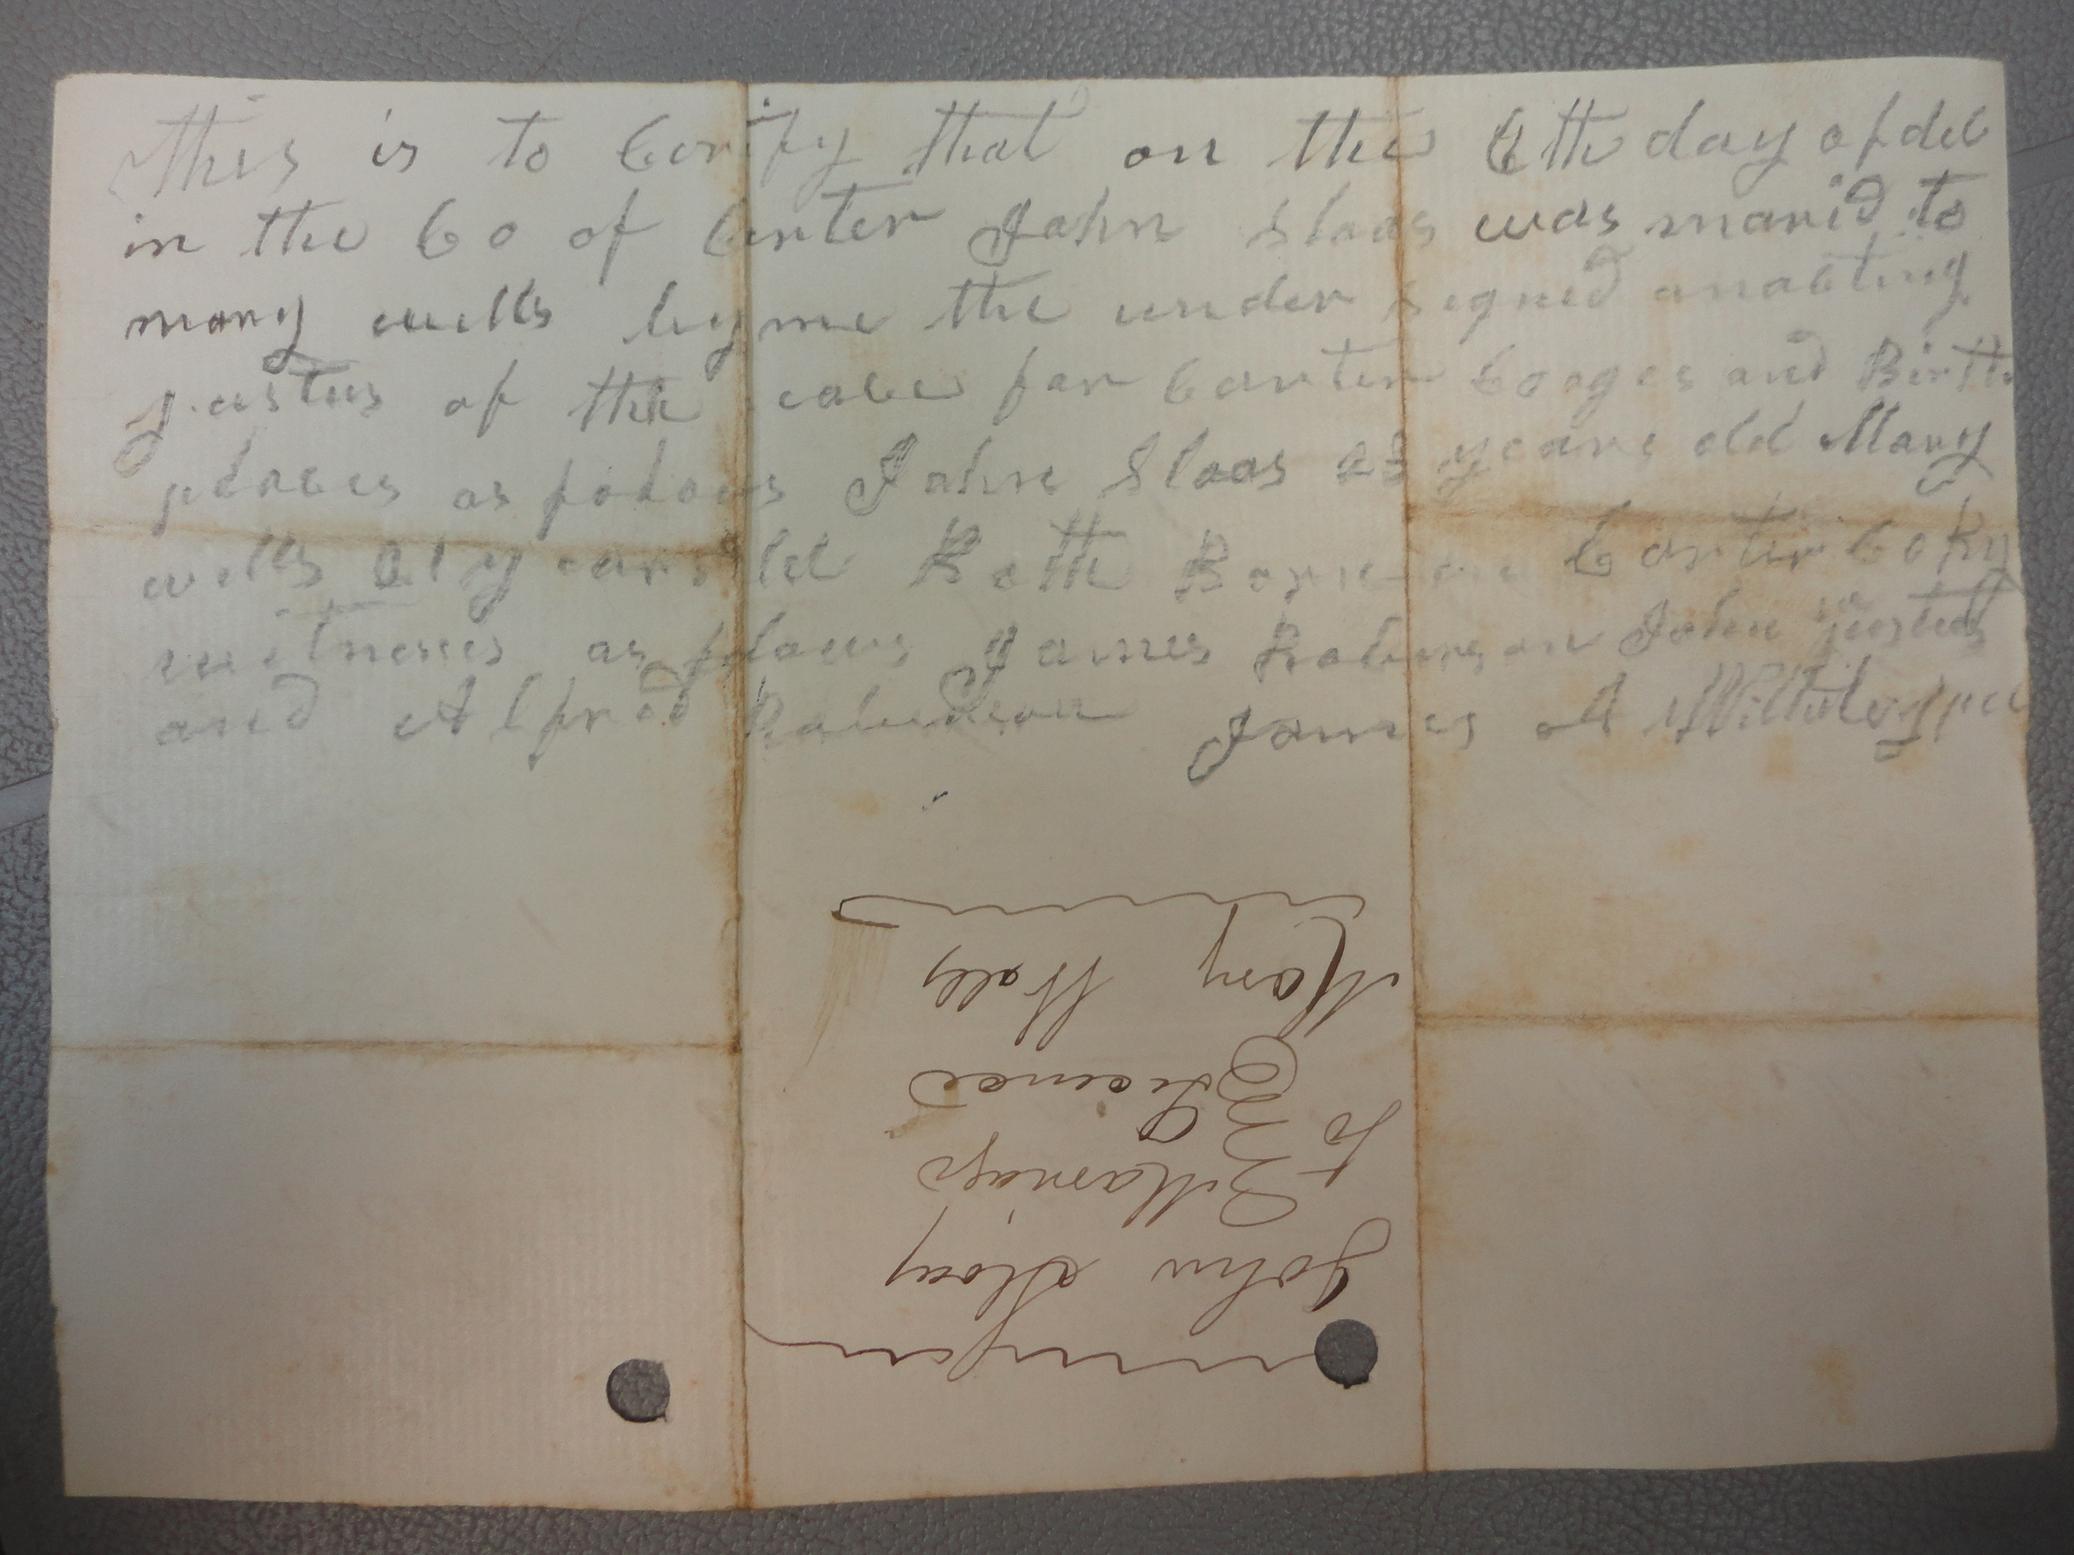 this is to Cerify that on the 6th day of dec
in the Co of Carter John Sloas was marid to
mary wells by me the under signed anacting
justus of the pace for Carter Co ages and Birth
places as folows John Sloas 23 years old Mary
wells 21 years old Both Borne in Carter Co Ky
witneses as folows James Robinson John justus
and Alfred Robinson James A
John Sloas
To } Marriage
Licence
Mary Wells